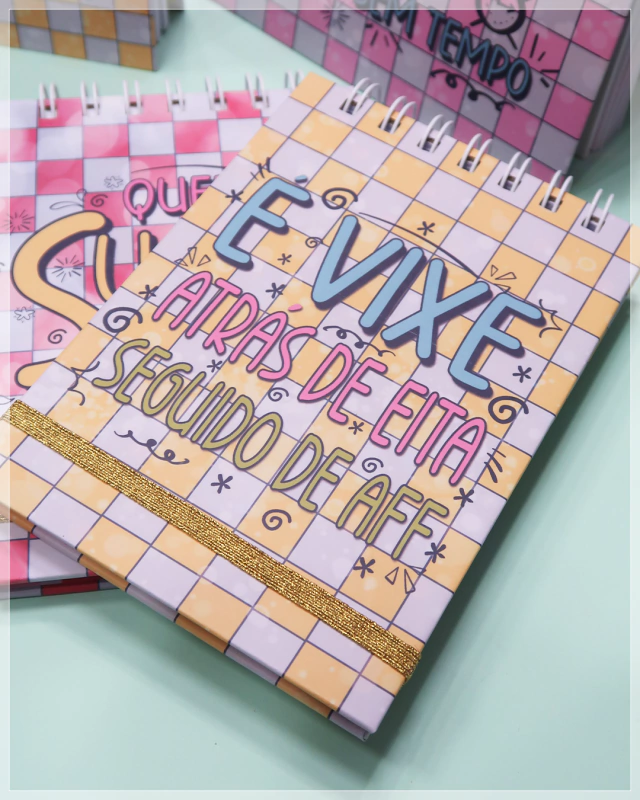 SEM TEMPO
É VIXE
ATRÁS DE EITA
SEGUIDO DE AFF